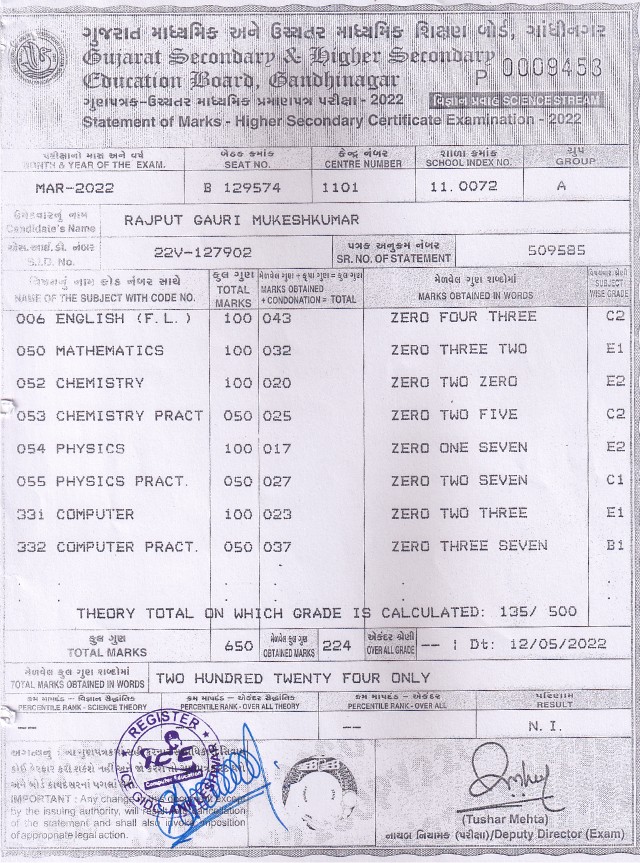 ગુજરાત માધ્યમિક અને ઉચ્ચતર માધ્યમિક શિક્ષણ બોર્ડ, ગાંધીનગર
Gujarat Secondary & Higher Secondary
Education Board, Gandhinagar
P 0009453
ગુણપત્રક-ઉચ્ચતર માધ્યમિક પ્રમાણપત્ર પરીક્ષા - 2022 વિજ્ઞાન પ્રવાહ SCIENCE STREAM
Statement of Marks - Higher Secondary Certificate Examination - 2022
પરીક્ષાનો માસ અને વર્ષ બેઠક ક્રમાંક કેન્દ્ર નંબર શાળા ક્રમાંક ગ્રુપ
MONTH & YEAR OF THE EXAM. SEAT NO. CENTRE NUMBER SCHOOL INDEX NO. GROUP
MAR-2022 B 129574 1101 11.0072 A
ઉમેદવારનું નામ
Candidate's Name RAJPUT GAURI MUKESHKUMAR
એસ.આઈ.ડી. નંબર
S.I.D. No. 22V-127902
પત્રક અનુક્રમ નંબર
SR. NO. OF STATEMENT 509585
વિષયનું નામ કોડ નંબર સાથે કુલ ગુણ મેળવેલ ગુણ + કૃપા ગુણ = કુલ ગુણ મેળવેલ ગુણ શબ્દોમાં
NAME OF THE SUBJECT WITH CODE NO. TOTAL MARKS MARKS OBTAINED + CONDONATION = TOTAL MARKS OBTAINED IN WORDS SUBJECT WISE GRADE
006 ENGLISH (F.L.) 100 043 ZERO FOUR THREE C2
050 MATHEMATICS 100 032 ZERO THREE TWO E1
052 CHEMISTRY 100 020 ZERO TWO ZERO E2
053 CHEMISTRY PRACT 050 025 ZERO TWO FIVE C2
054 PHYSICS 100 017 ZERO ONE SEVEN E2
055 PHYSICS PRACT. 050 027 ZERO TWO SEVEN C1
331 COMPUTER 100 023 ZERO TWO THREE E1
332 COMPUTER PRACT. 050 037 ZERO THREE SEVEN B1
THEORY TOTAL ON WHICH GRADE IS CALCULATED: 135/ 500
કુલ ગુણ મેળવેલ કુલ ગુણ એકંદર શ્રેણી
TOTAL MARKS 650 OBTAINED MARKS 224 OVER ALL GRADE -- | Dt: 12/05/2022
મેળવેલ કુલ ગુણ શબ્દોમાં
TOTAL MARKS OBTAINED IN WORDS TWO HUNDRED TWENTY FOUR ONLY
ક્રમ માપદંડ - વિજ્ઞાન સૈદ્ધાંતિક ક્રમ માપદંડ - એકંદર સૈદ્ધાંતિક ક્રમ માપદંડ - એકંદર પરિણામ
PERCENTILE RANK - SCIENCE THEORY PERCENTILE RANK - OVER ALL THEORY PERCENTILE RANK - OVER ALL RESULT
-- -- N. I.
REGISTER
ICE
IMPORTANT : Any change in this document except
by the issuing authority, will result in cancellation
of the statement and shall also invoke imposition
of appropriate legal action.
(Tushar Mehta)
નાયબ નિયામક (પરીક્ષા)/Deputy Director (Exam)